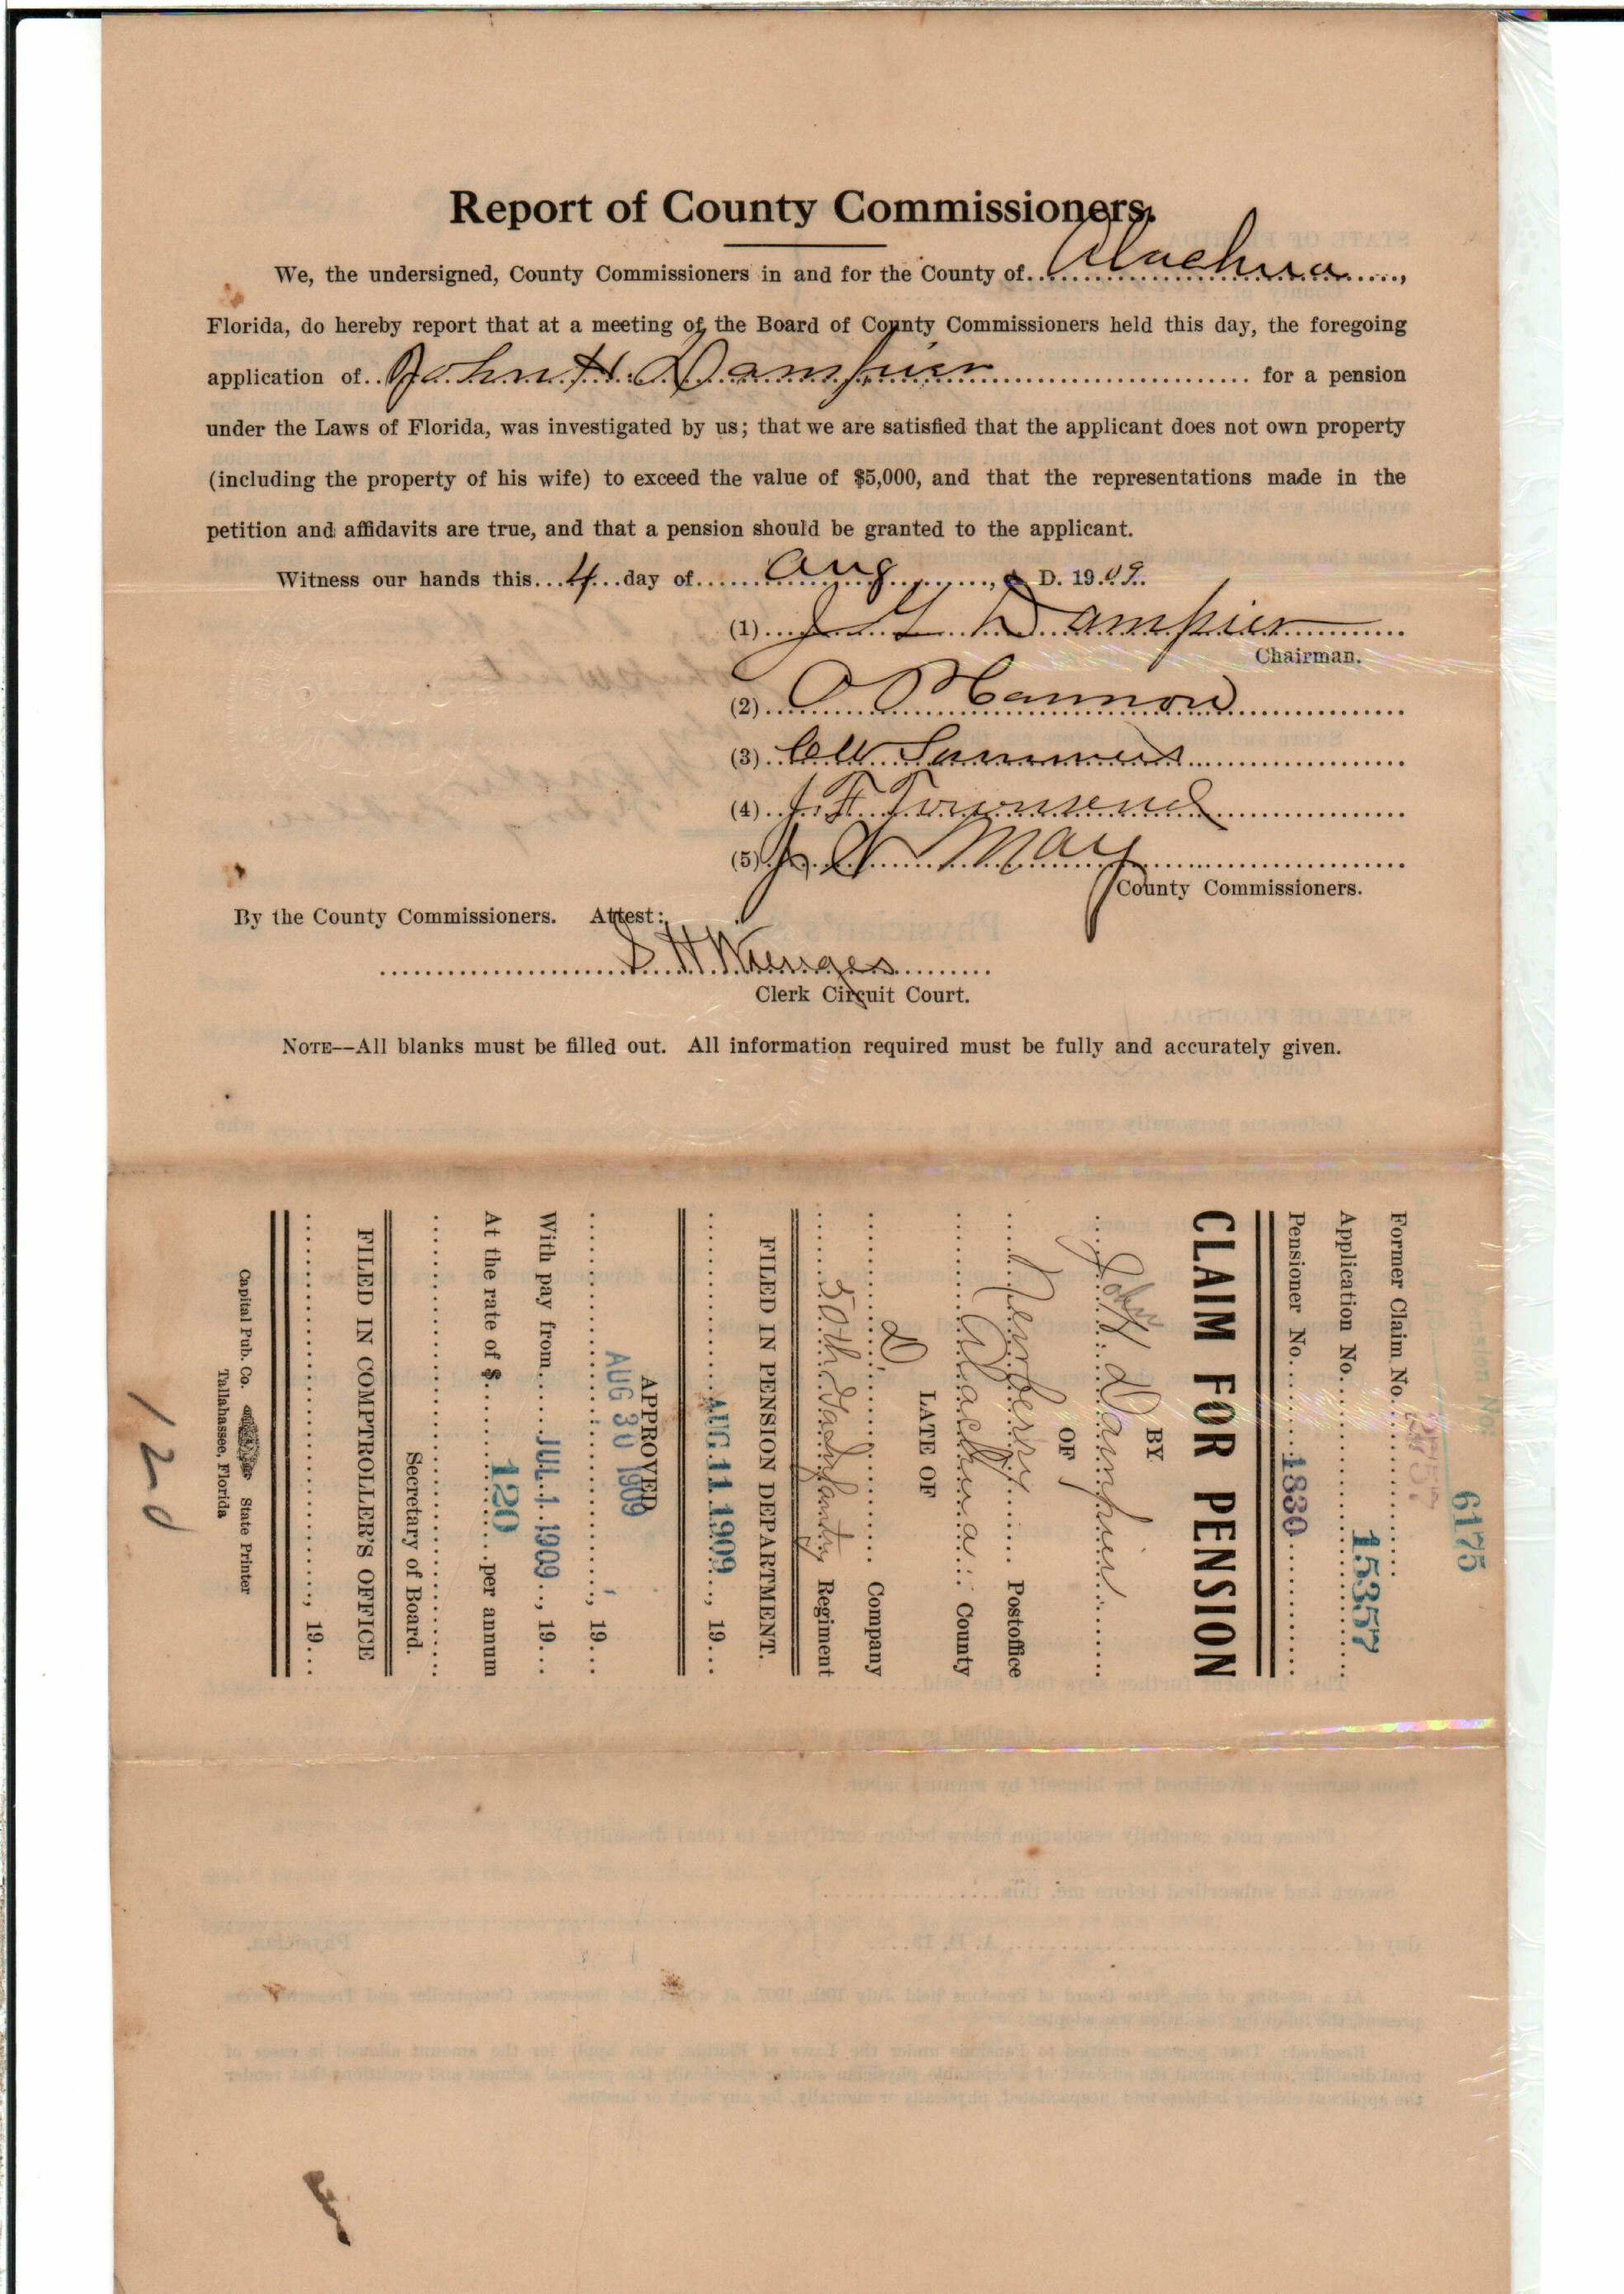 Report of County Commissioners.
We, the undersigned, County Commissioners in and for the County of Alachua,
Florida, do hereby report that at a meeting of the Board of County Commissioners held this day, the foregoing
application of John H. Dampier for a pension
under the Laws of Florida, was investigated by us; that we are satisfied that the applicant does not own property
(including the property of his wife) to exceed the value of $5,000, and that the representations made in the
petition and affidavits are true, and that a pension should be granted to the applicant.
Witness our hands this 4 day of Aug, A D. 1909.
(1) J G Dampier
Chairman.
(2) O P Cannon
(3) C W Summers
(4) J. F. Townsend
(5) May
County Commissioners.
By the County Commissioners. Attest:
S H Wienges
Clerk Circuit Court.
NOTE--All blanks must be filled out. All information required must be fully and accurately given.
6175
Former Claim No.
Application No. 15357
Pensioner No. 1830
CLAIM FOR PENSION
BY
John H. Dampier
OF
Newberry Postoffice
Alachua County
LATE OF
D Company
50th Ga Infantry Regiment
FILED IN PENSION DEPARTMENT.
AUG 11 1909, 19
APPROVED
AUG 30 1909, 19
With pay from JUL 1 1909, 19
At the rate of $ 120 per annum
Secretary of Board.
FILED IN COMPTROLLER'S OFFICE
, 19
Capital Pub. Co. State Printer
Tallahassee, Florida
120